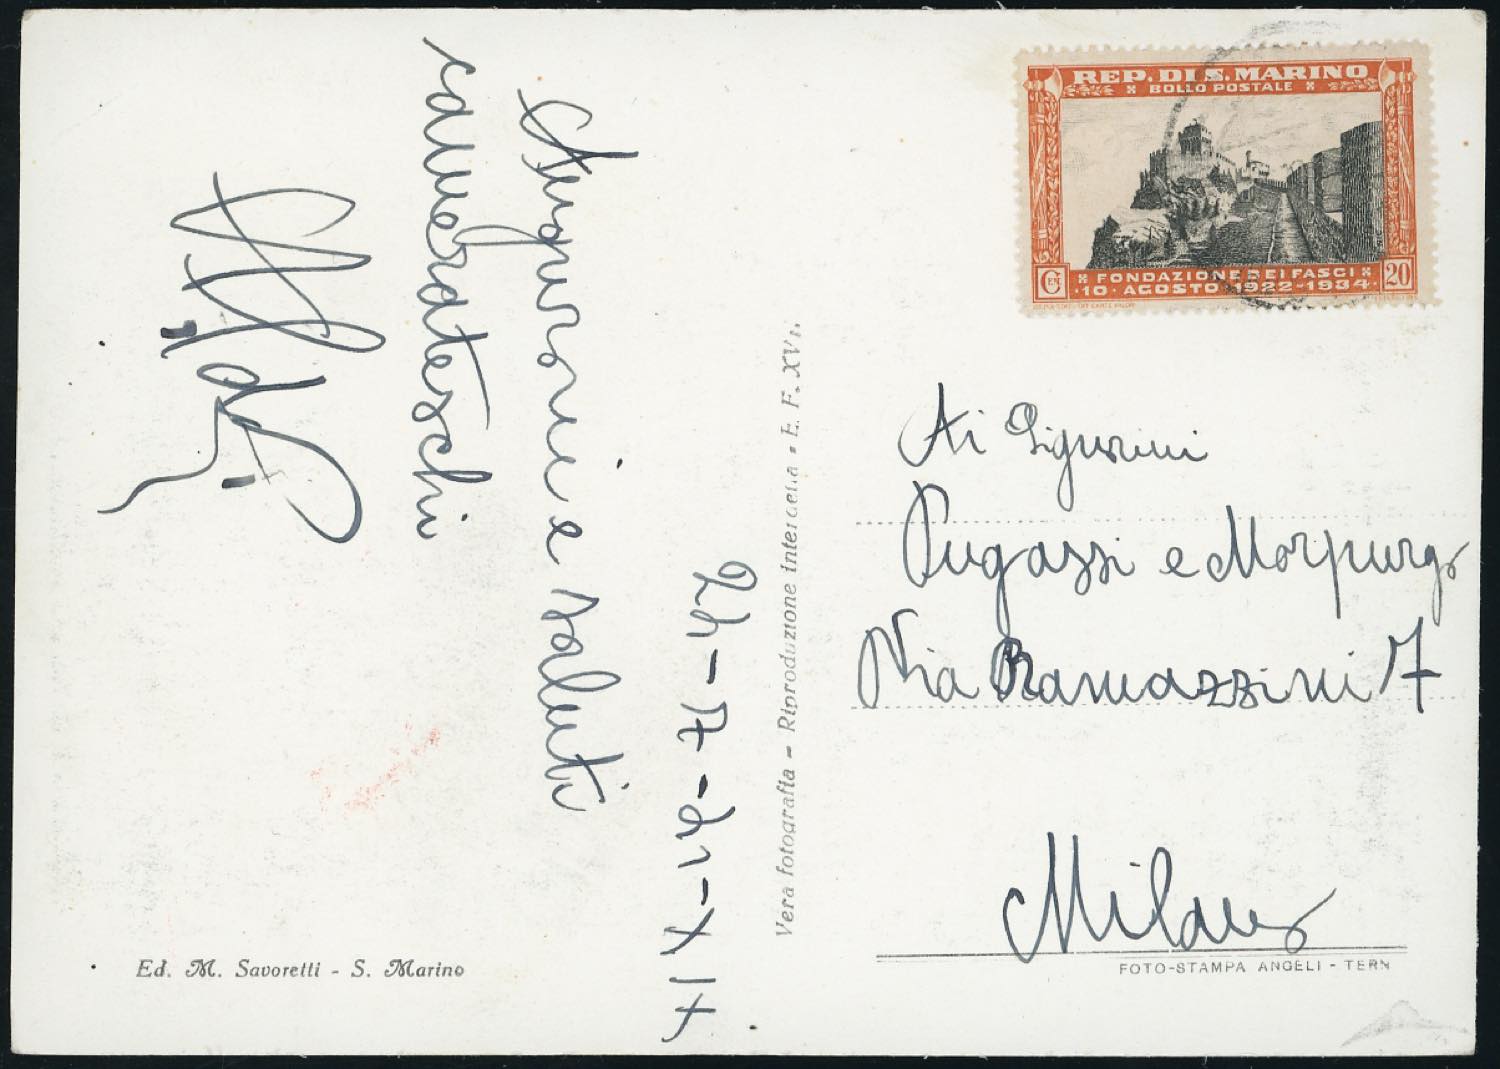 REP. DI S. MARINO
BOLLO POSTALE
FONDAZIONE DEI FASCI
10 AGOSTO 1922-1934
CEN 20
Auguroni e saluti
camerateschi
Vera fotografia - Riproduzione interdetta • E. F. XVI.
Ai Signorini
Pugassi e Morpurgo
Via Ramazzini 7
Milano
Ed. M. Savoretti - S. Marino
FOTO-STAMPA ANGELI - TERNI